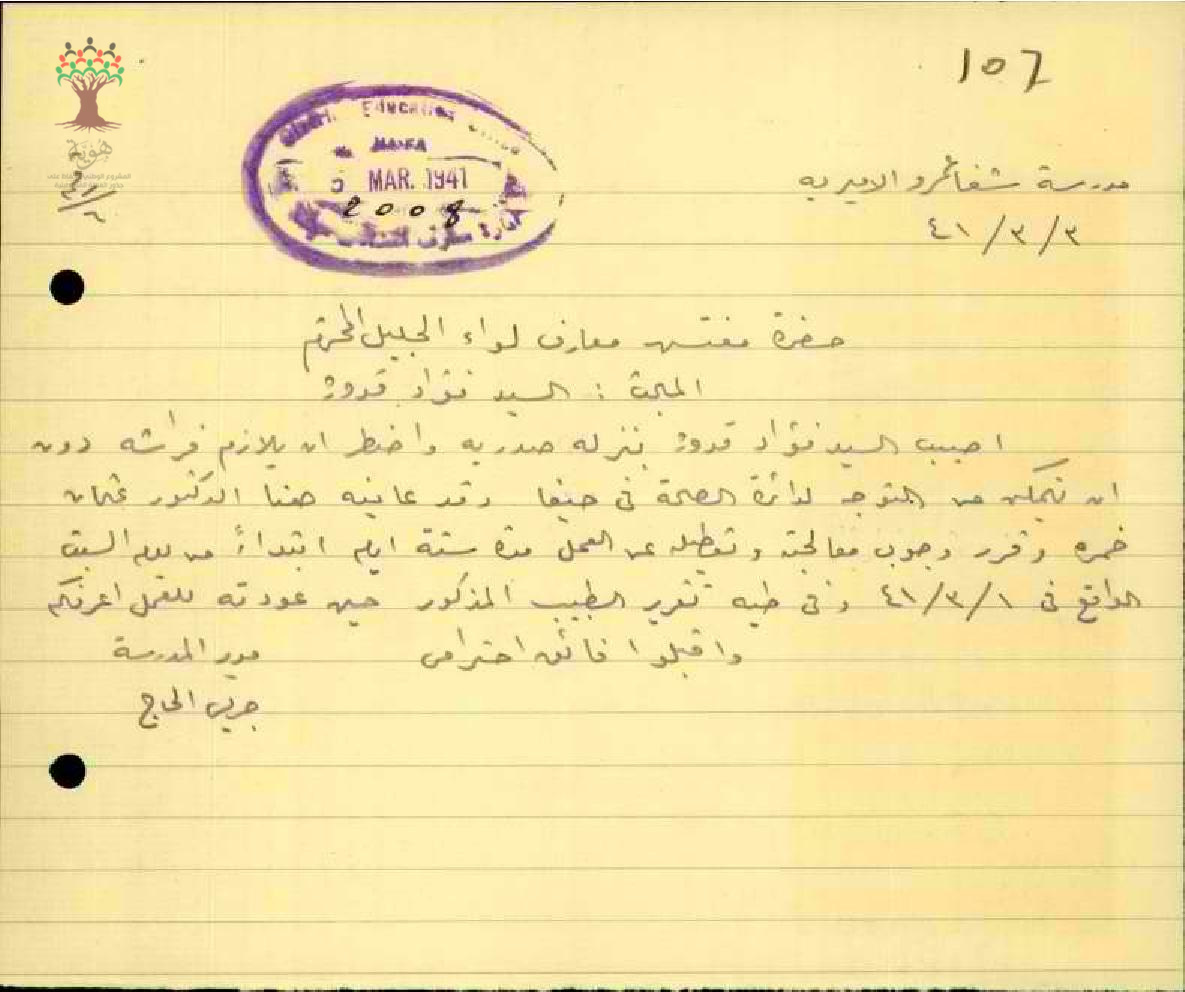 107
هوية
DISTRICT EDUCATION OFFICE
HAIFA
5 MAR. 1941
2008
إدارة معارف
مدرسة شفاعمرو الاميريه
٣/٣/٤١
حضرة مفتش معارف لواء الجليل المحترم
المبحث : السيد فؤاد قدوره
اصيب السيد فؤاد قدوره بنزله صدريه واضطر ان يلازم فراشه دون
ان يتمكن من التوجه لدائرة الصحة في حيفا وقد عاينه هنا الدكتور عثمان
خمره وقرر وجوب معالجته وتعطيله عن العمل مدة ستة ايام ابتداءً من يوم السبت
الواقع في ١/٣/٤١ وفي طيه تقرير الطبيب المذكور حين عودته للعمل اعرفكم
واقبلوا فائق احترامي
مدير المدرسة
جريس الحاج